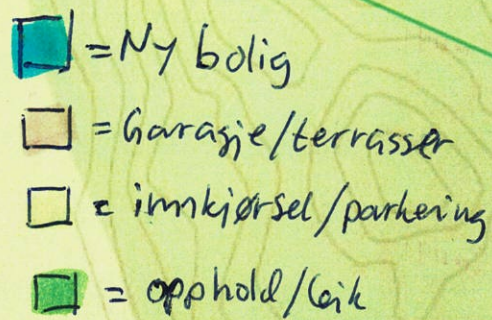 = Ny bolig
= Garasje/terrasser
= innkjørsel/parkering
= opphold/leik